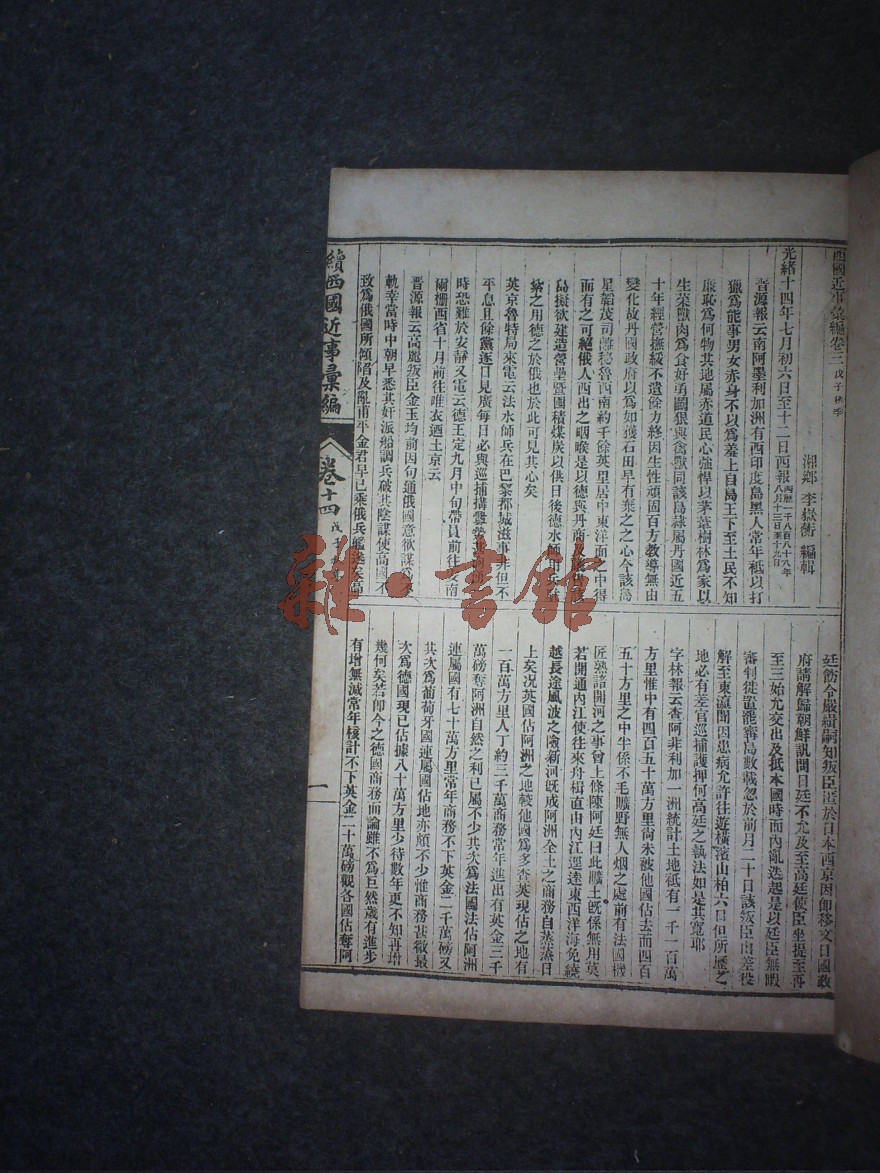 西國近事彙編卷三 戊子秋季
湘鄉 李嶽蘅 編輯
光緒十四年七月初六日至十二日西報 西歷一千八百八十八年八月十三日至十九日
晉源報云南阿墨利加洲有西印度島黑人常年祗以打
獵爲能事男女赤身不以爲羞上自島王下至土民不知
廉恥爲何物其地屬赤道民心強悍以茅葦樹林爲家以
生菜獸肉爲食好勇鬬狠與禽獸同該島隸屬丹國近五
十年經營撫綏不遺餘力終因生性頑固百方教導無由
變化故丹國政府以爲如獲石田早有棄之之心今該島
星船茂司離秘魯西南約千餘英里居中東洋面之中得
而有之可絕俄人西出之咽喉是以德與丹商
島擬欲建造營壘囤積煤炭以供日後德水師
紮之用德之於俄也於此可見其心矣
英京魯特局來電云法水師兵在巴黎都城滋事非但不
平息且餘黨逐日見廣每日必與巡捕搆釁
時恐難於安靜又電云德王定九月中旬帶員前往
爾柵西省十月前往唯衣迺土京云
晉源報云高麗叛臣金玉均前因句通俄國意欲謀爲
軌幸當時中朝早悉其奸派船調兵破其陰謀使高國不
致爲俄國所傾陷及亂甫平金君早已乘俄兵艦
廷飭令嚴緝嗣知叛臣匿於日本西京因卽移文日國政
府請解歸朝鮮訊問日廷不允及至高廷使臣坐提至再
至三始允交出及抵本國時而內亂迭起是以廷臣無暇
審判徙置罷審島數載忽於前月二十日該叛臣由差役
解至東瀛聞因患病允許往遊橫濱山柏六日但所歷之
地必有差官巡捕護押何高廷之執法如是其寬耶
字林報云查阿非利加一洲統計土地祗有一千一百萬
方里惟中有四百五十萬方里尚未被他國佔去而四百
五十方里之中半係不毛曠野無人烟之處前有法國機
匠熟諳開河之事曾上條陳阿廷曰此曠土旣係無用莫
若開通內江使往來舟楫直由內江逕達東西洋海免繞
越長途風波之險新河旣成阿洲全土之商務自蒸蒸日
上矣况英國佔阿洲之地較他國爲多查英現佔之地有
一百萬方里人丁約三千萬商務常年進出有英金三千
萬磅奪阿洲自然之利已屬不少其次爲法國法佔阿洲
連屬國有七十萬方里常年商務不下英金二千萬磅又
其次爲葡萄牙國連屬國佔地亦頗不少惟商務甚微最
次爲德國現已佔據八十萬方里少待數年更不知再增
幾何矣若卽今之德國商務而論雖不爲巨然歲有進步
有增無減常年核計不下英金二十萬磅觀各國佔奪阿
續西國近事彙編
卷十四 戊子
一
雜·書館